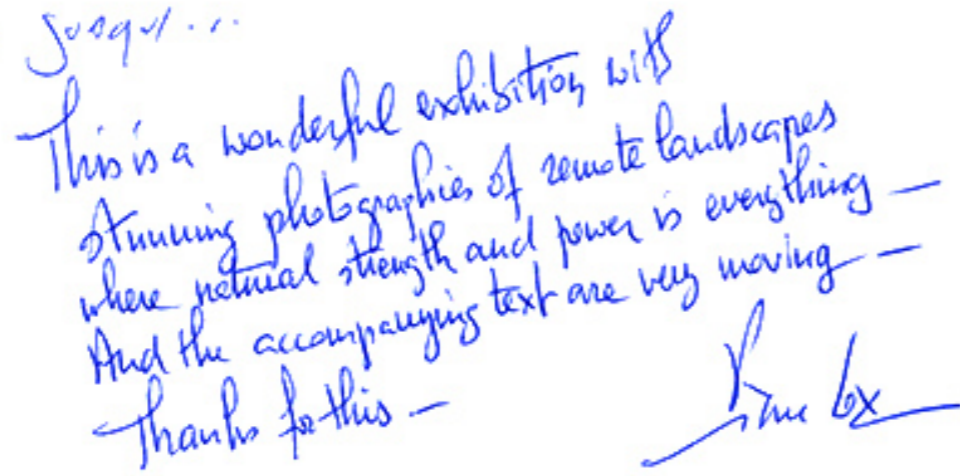 This is a wonderful exhibition with
stunning photographies of remote landscapes
where natural strength and power is everything —
And the accompanying text are very moving —
Thanks for this —